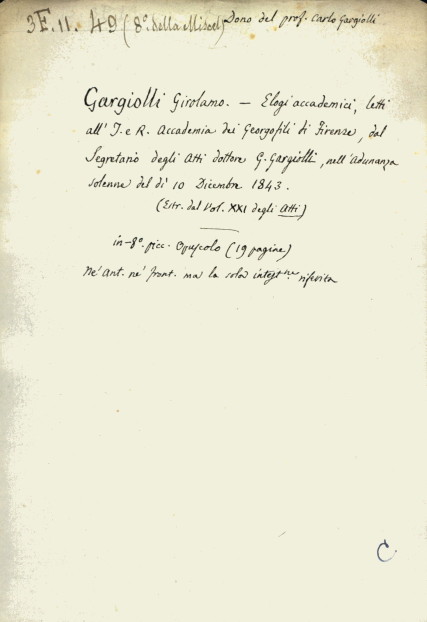 3E.11.49 (8º. della Miscel) Dono del prof. Carlo Gargiolli
Gargiolli Girolamo. — Elogi accademici, letti
all' I. e R. Accademia dei Georgofili di Firenze, dal
Segretario degli Atti dottore G. Gargiolli, nell' Adunanza
solenne del dì 10 Dicembre 1843.
(Estr. dal Vol. XXI degli Atti)
in-8º. picc. Opuscolo (19 pagine)
Nè Ant. nè front. ma la sola intestne. riferita
C